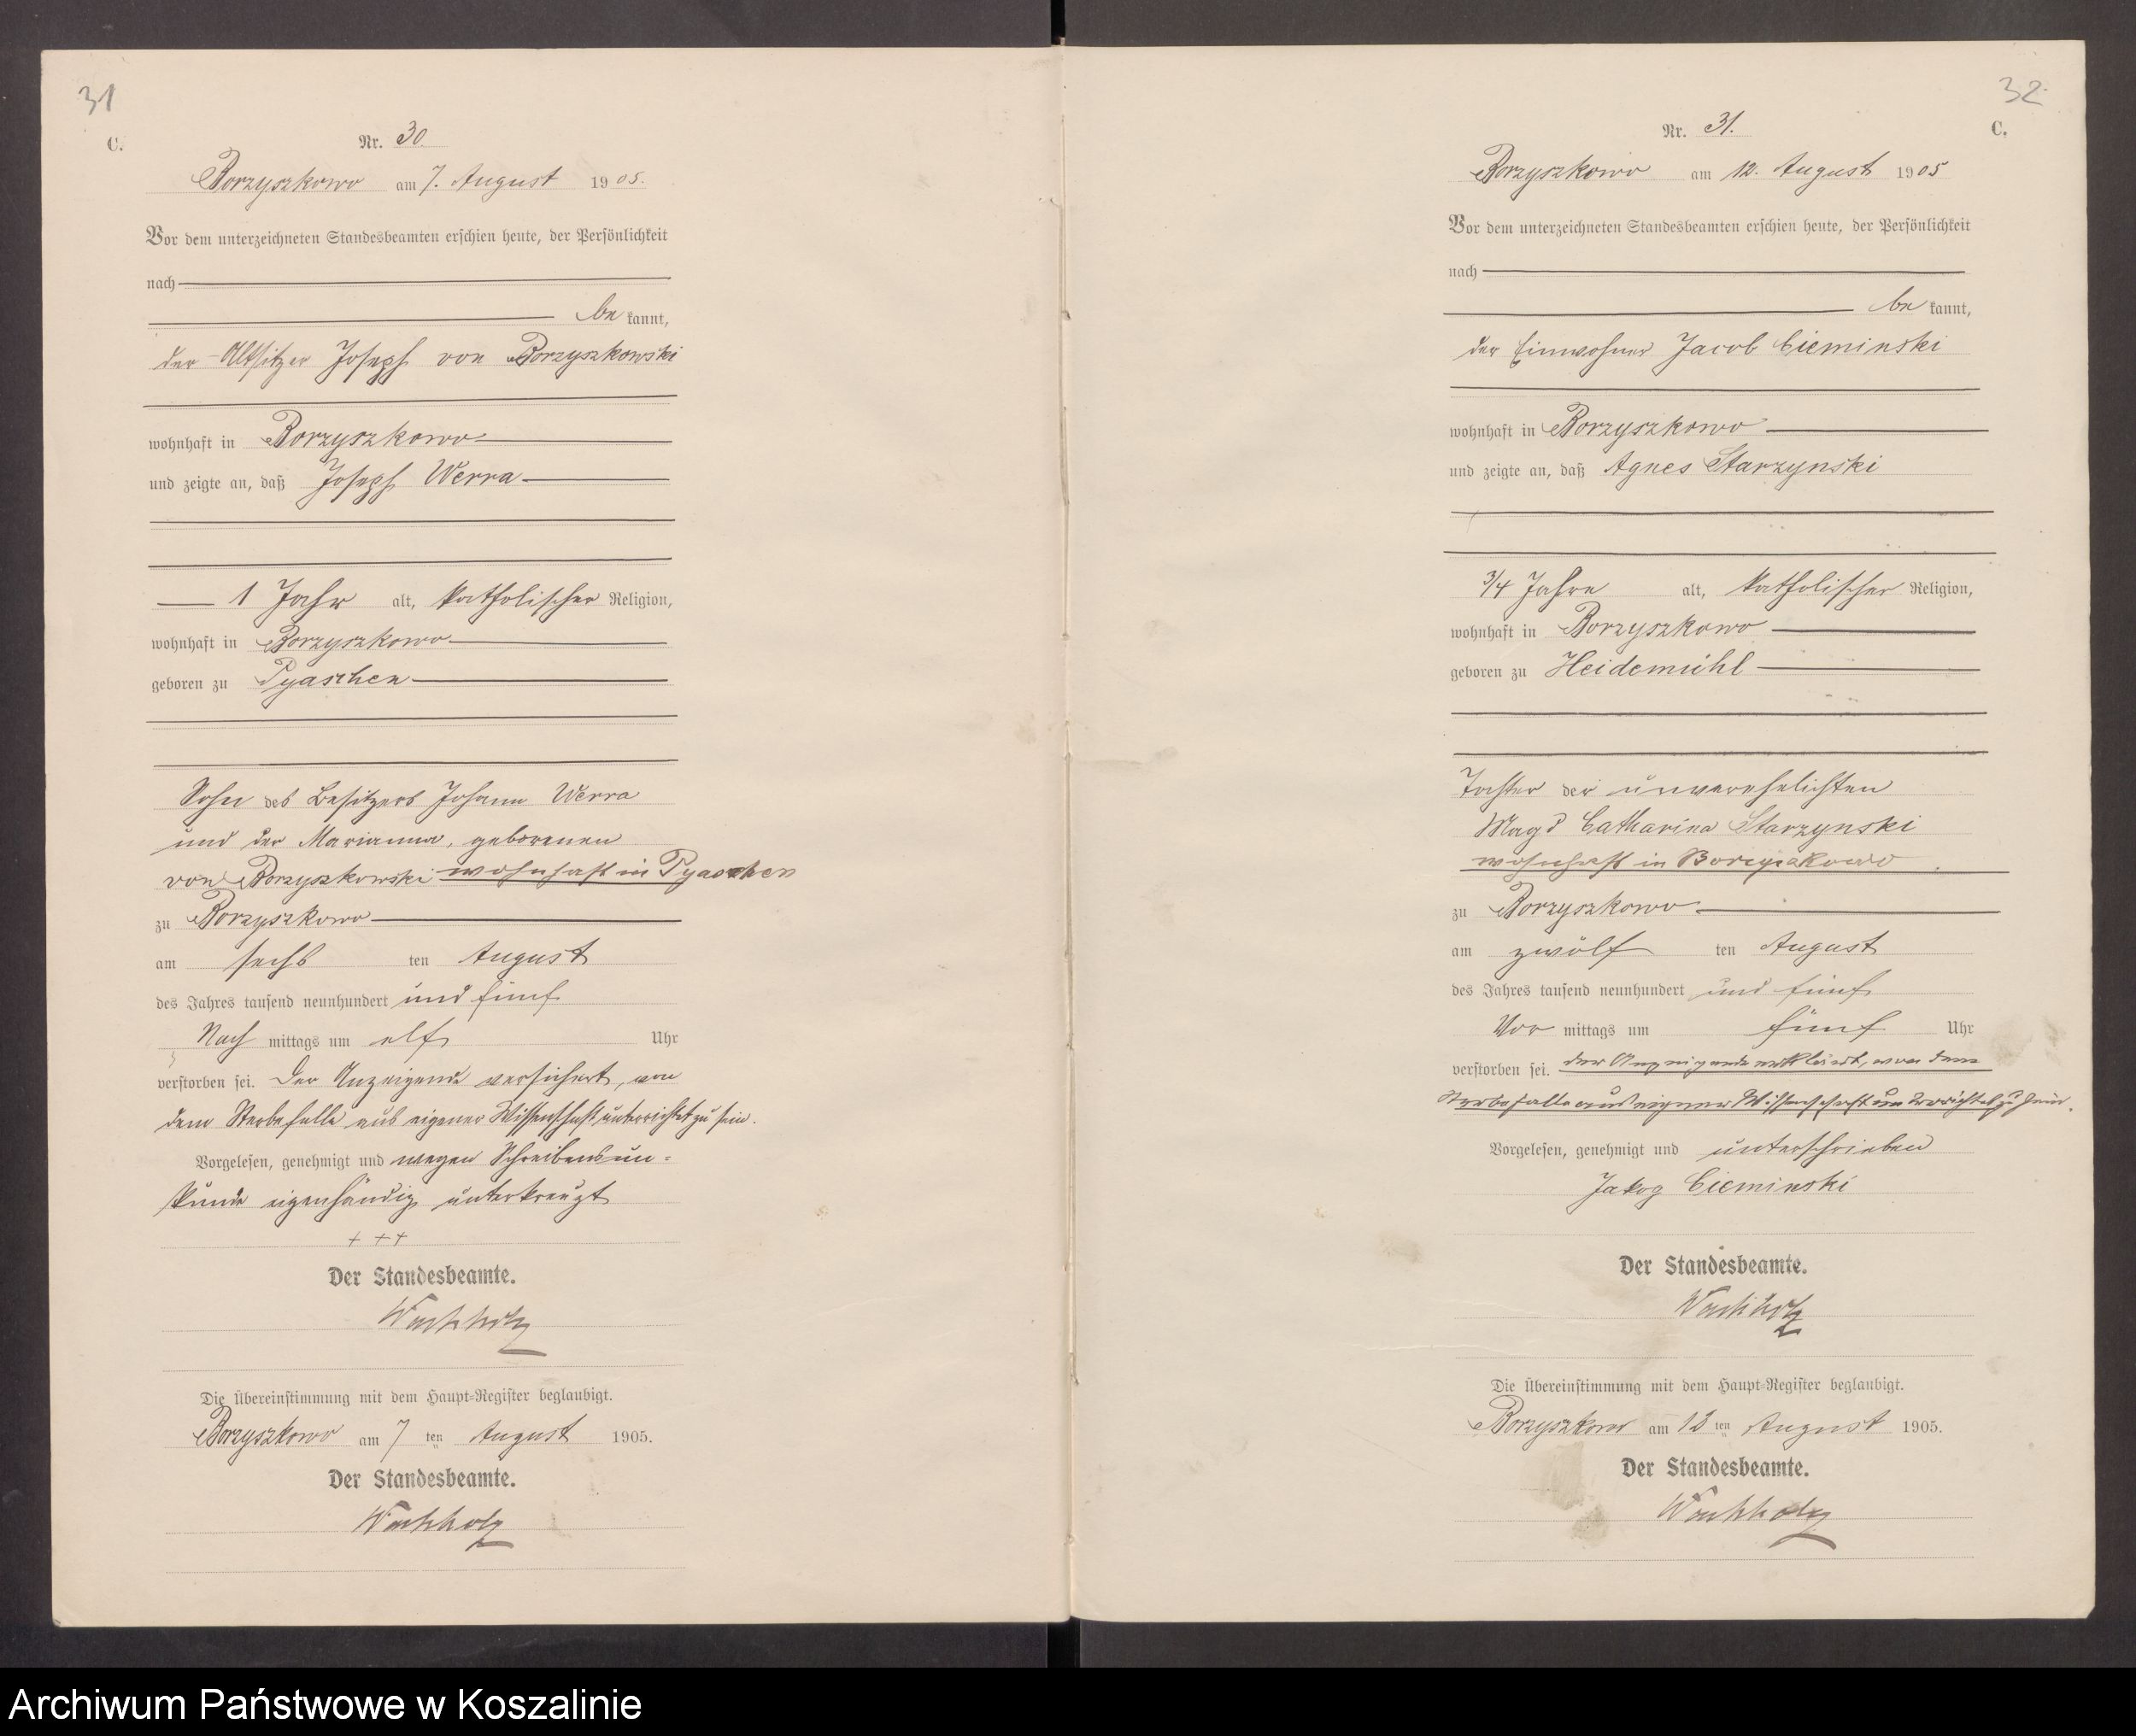 31
C.
Nr. 30.
Borzyszkowo am 7. August 1905.
Vor dem unterzeichneten Standesbeamten erschien heute, der Persönlichkeit
nach
be kannt,
der Altsitzer Joseph von Borzyszkowski
wohnhaft in Borzyszkowo
und zeigte an, daß Joseph Werra
1 Jahr alt, katholischer Religion,
wohnhaft in Borzyszkowo
geboren zu Pyaschen
Sohn des Besitzers Johann Werra
und der Marianna, geborenen
von Borzyszkowski wohnhaft in Pyaschen
zu Borzyszkowo
am sechs ten August
des Jahres tausend neunhundert und fünf
Nach mittags um elf Uhr
verstorben sei. Der Anzeigende versichert, von
dem Sterbefalle aus eigener Wissenschaft unterrichtet zu sein.
Vorgelesen, genehmigt und wegen Schreibensun-
kunde eigenhändig unterkreuzt
+ + +
Der Standesbeamte.
Wachholz
Die Übereinstimmung mit dem Haupt-Register beglaubigt.
Borzyszkowo am 7 ten August 1905.
Der Standesbeamte.
Wachholz
32
C.
Nr. 31.
Borzyszkowo am 12. August 1905
Vor dem unterzeichneten Standesbeamten erschien heute, der Persönlichkeit
nach
be kannt,
der Einwohner Jacob Cieminski
wohnhaft in Borzyszkowo
und zeigte an, daß Agnes Starzynski
3/4 Jahre alt, katholischer Religion,
wohnhaft in Borzyszkowo
geboren zu Heidemühl
Tochter der unverehelichten
Magd Catharina Starzynski
wohnhaft in Borzyszkowo
zu Borzyszkowo
am zwölf ten August
des Jahres tausend neunhundert und fünf
Vor mittags um fünf Uhr
verstorben sei. der Anzeigende erklärt, von dem
Sterbefalle aus eigener Wissenschaft unterrichtet zu sein.
Vorgelesen, genehmigt und unterschrieben
Jakog Cieminski
Der Standesbeamte.
Wachholz
Die Übereinstimmung mit dem Haupt-Register beglaubigt.
Borzyszkowo am 12 ten August 1905.
Der Standesbeamte.
Wachholz
Archiwum Państwowe w Koszalinie